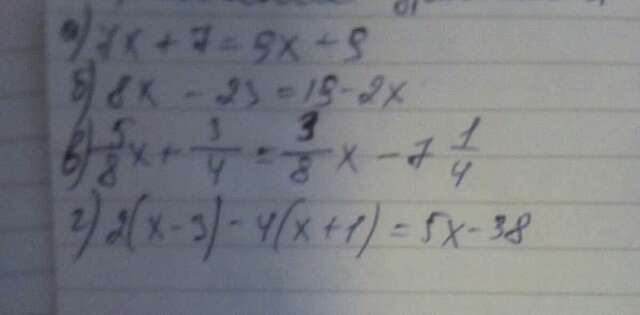 а) 7x + 7 = 9x + 9
б) 8x - 23 = 19 - 2x
в) 5/8 x + 3/4 = 3/8 x - 7 1/4
г) 2(x - 3) - 4(x + 1) = 5x - 38